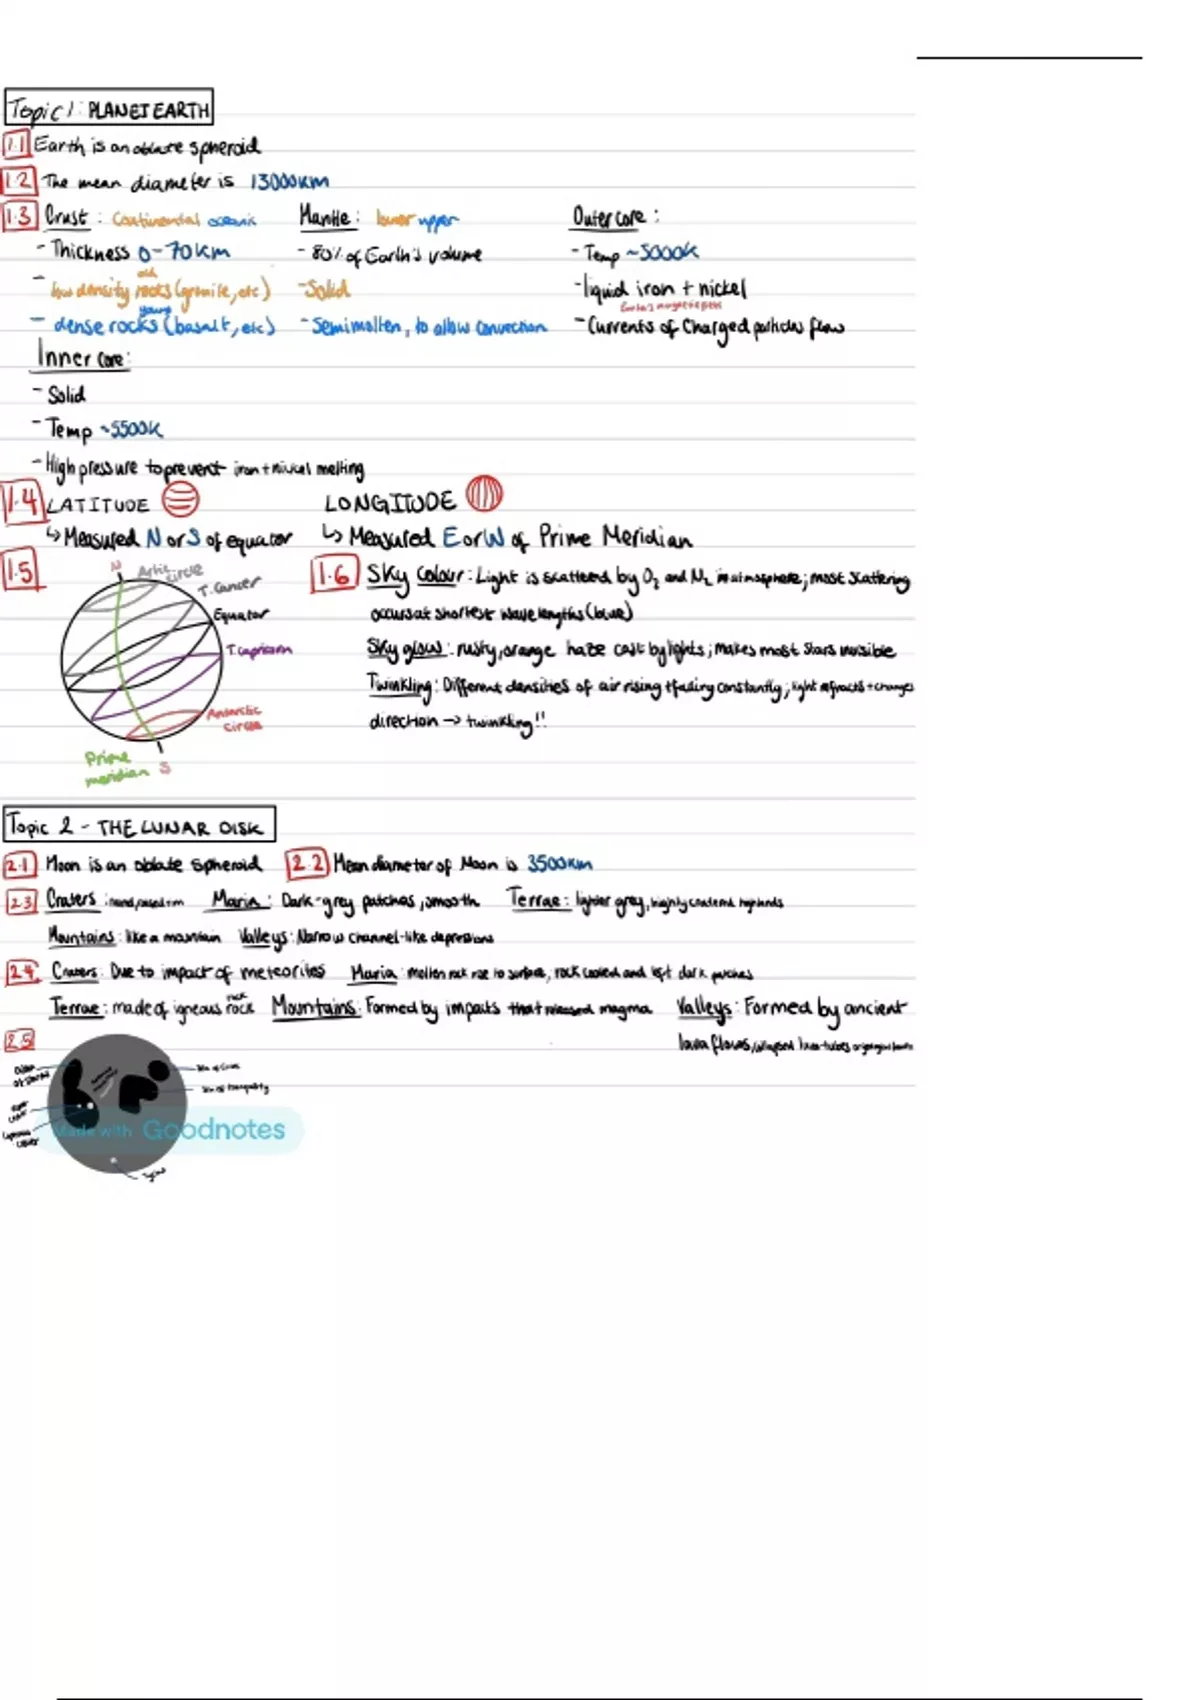 Topic 1: PLANET EARTH
1.1 Earth is an oblate spheroid
1.2 The mean diameter is 13000km
1.3 Crust: Continental oceanic Mantle: lower upper Outer core:
- Thickness 0-70km - 80% of Earth's volume - Temp ~5000K
old
- low density rocks (granite, etc) - Solid - liquid iron + nickel
young Earth's magnetic field
- dense rocks (basalt, etc) - Semi molten, to allow convection - Currents of Charged particles flow
Inner core:
- Solid
- Temp ~5500K
- High pressure to prevent iron + nickel melting
1.4 LATITUDE LONGITUDE
↳ Measured N or S of equator ↳ Measured E or W of Prime Meridian
1.5 N Artic circle T. Cancer Equator T. Capricorn Antarctic circle Prime meridian S
1.6 Sky Colour: Light is scattered by O₂ and N₂ in atmosphere; most scattering
occurs at shortest wavelengths (blue)
Sky glow: rusty, orange haze cast by lights; makes most stars invisible
Twinkling: Different densities of air rising + fading constantly; light refracts + changes
direction → twinkling!!
Topic 2 - THE LUNAR DISK
2.1 Moon is an oblate spheroid 2.2 Mean diameter of Moon is 3500km
2.3 Craters: Maria: Dark-grey patches, smooth Terrae: lighter grey, highly cratered highlands
Mountains: like a mountain Valleys: Narrow channel-like depressions
2.4 Craters: Due to impact of meteorites Maria: molten rock rose to surface, rock cooled and left dark patches
Terrae: made of igneous rock Mountains: Formed by impacts that released magma Valleys: Formed by ancient
lava flows, collapsed lava-tubes or
2.5
Sea of Crises
Sea of tranquility
Tycho
Made with Goodnotes